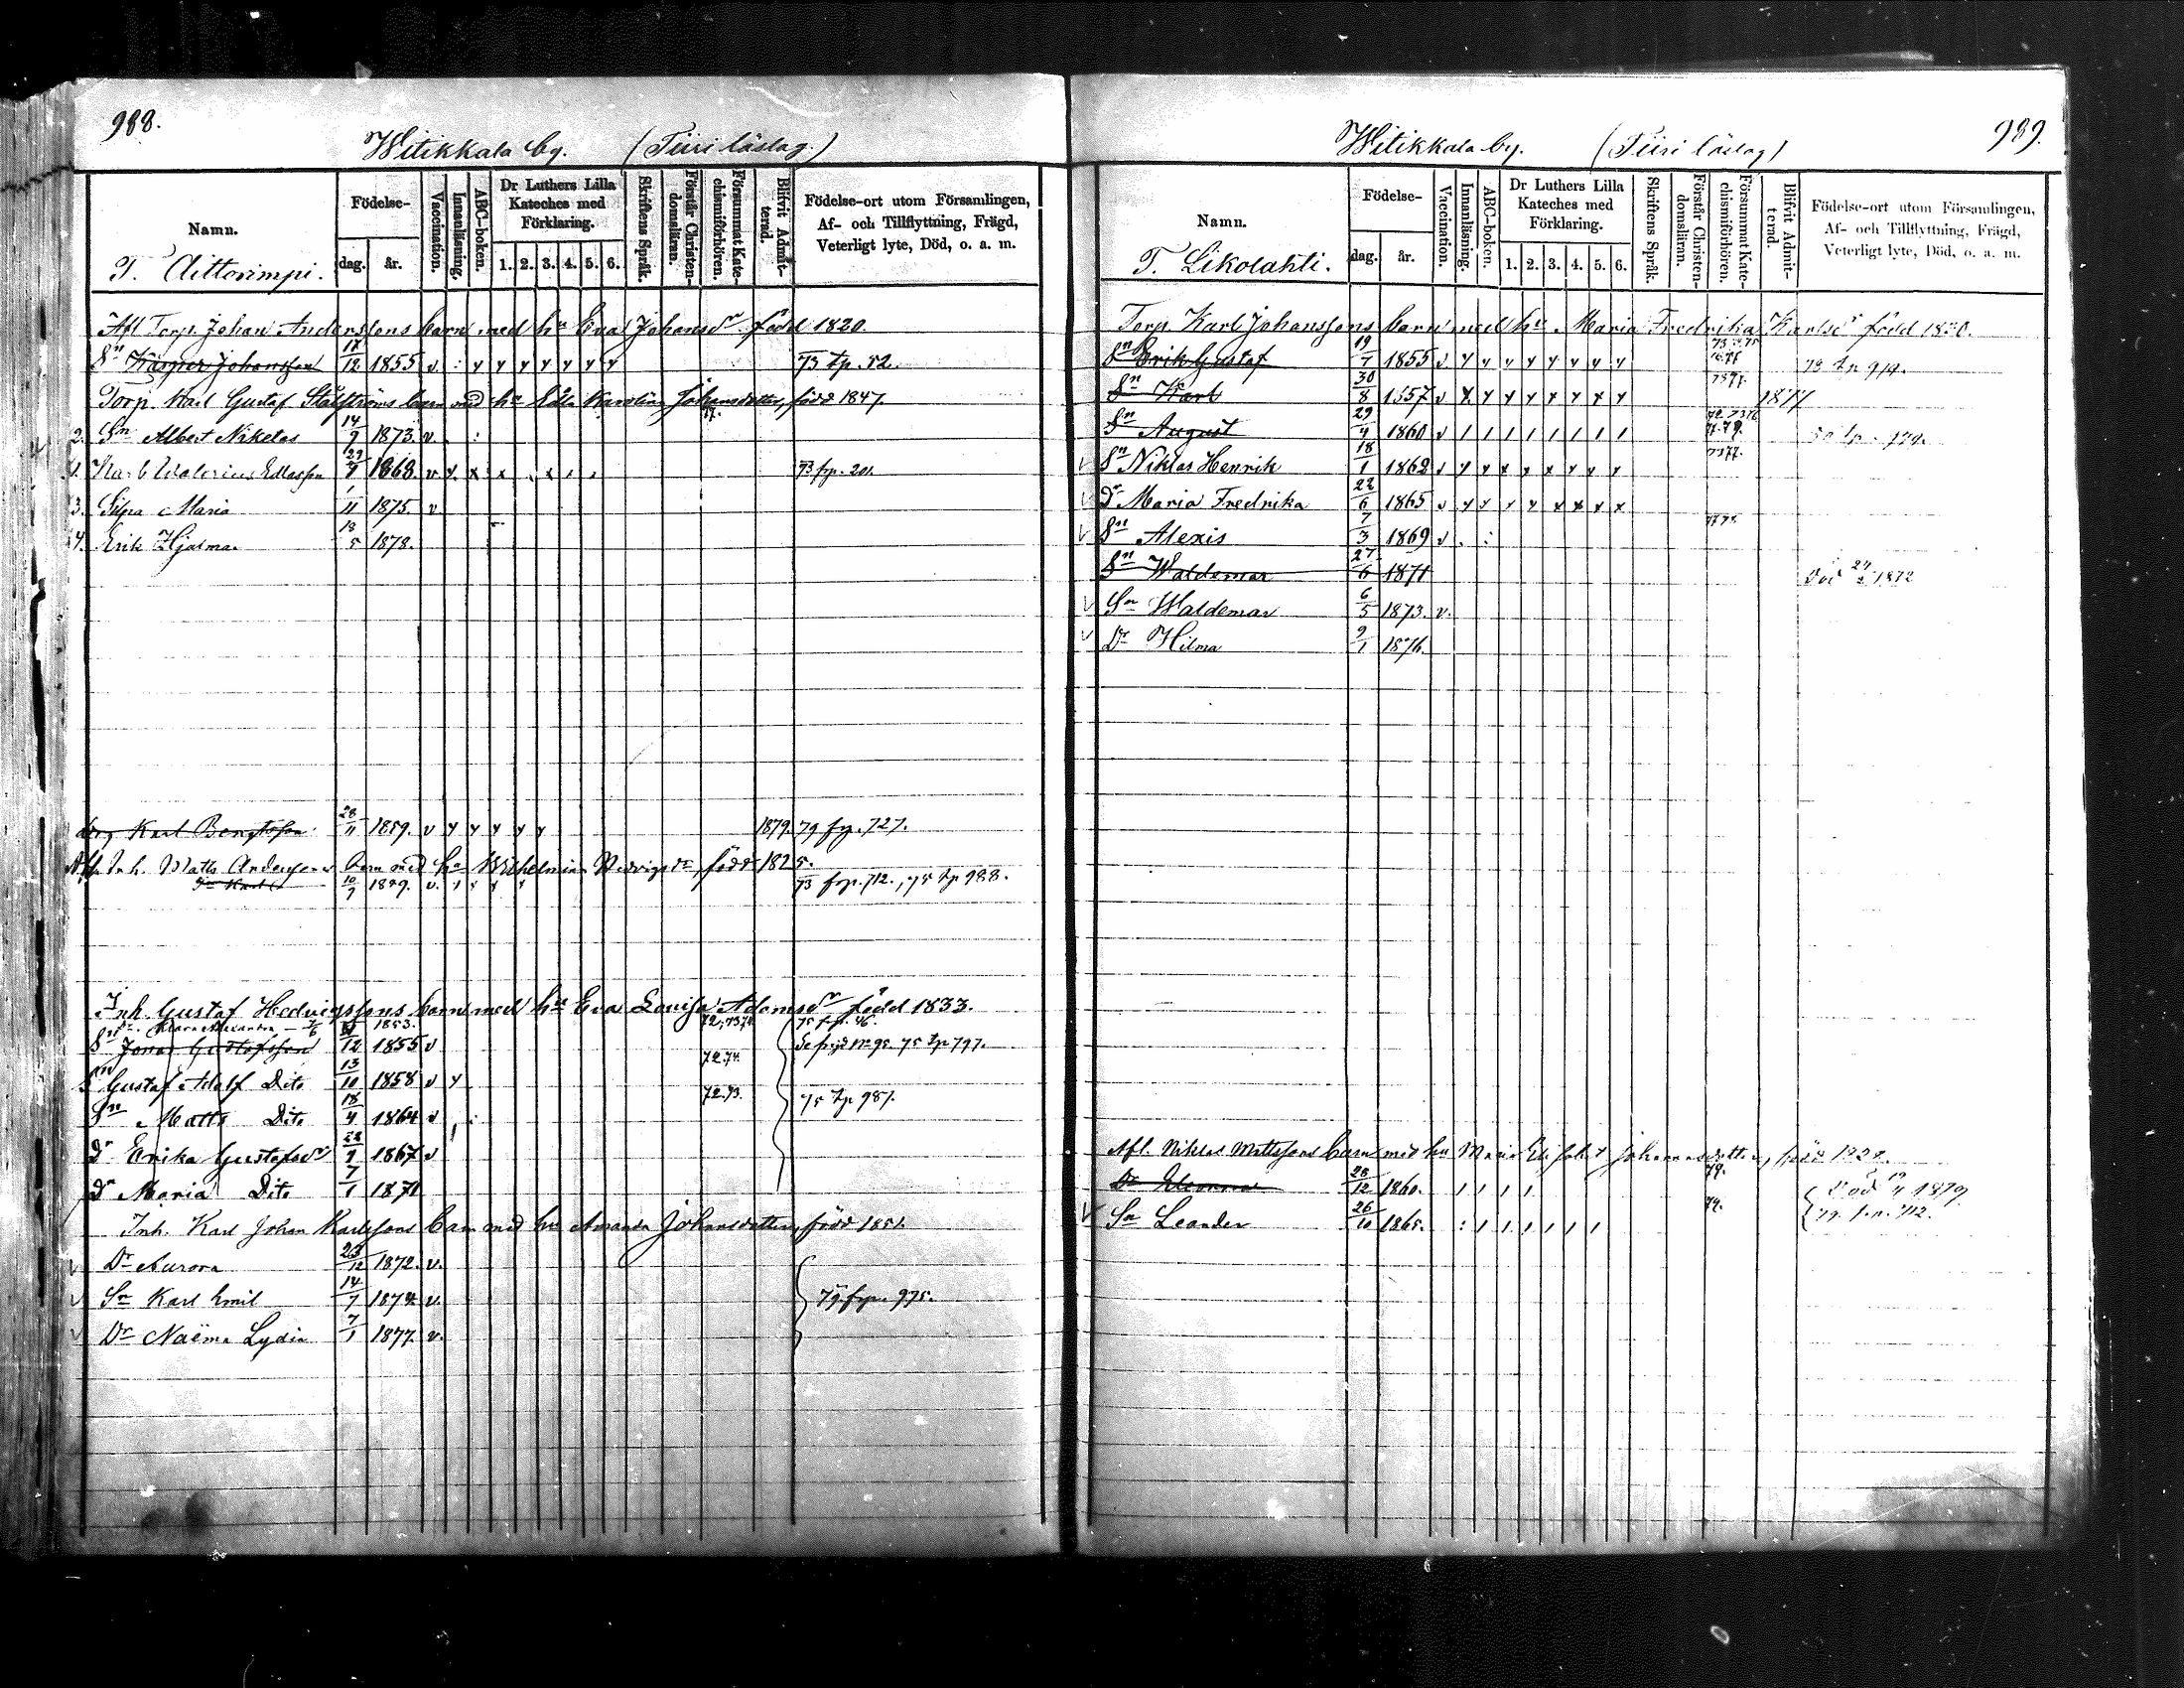 988.
Witikkala by. (Tiiri läslag.)
Namn.
Födelse-
dag. år.
Vaccination.
Innanläsning.
ABC-boken.
Dr Luthers Lilla Kateches med Förklaring.
1. 2. 3. 4. 5. 6.
Skriftens Språk.
Förstår Christen-domsläran.
Försummat Kate-chismiförhören.
Blifvit Admit-terad.
Födelse-ort utom Församlingen,
Af- och Tillflyttning, Frägd,
Veterligt lyte, Död, o. a. m.
T. Aittorimpi.
Afl Torp. Johan Anderssons barn med hu Eva Johansdr född 1820.
Sn Kasper Johansson 17/12 1855 v : y y y y y y y 73 tp. 52.
Torp. Karl Gustaf Stålströms barn med hu Edla Karolina Johansdotter, född 1847.
2. Sn Albert Nikolas 14/9 1873. v. : 77.
1. Karl Walerius Edlasson 29/7 1868. v. x. x x . x . . 73 frp. 201.
3. Silpa Maria 1/11 1875. v
4. Erik Hjalmar 13/5 1878.
drg Karl Bengtsson 28/11 1859. v y y y y y 1879. 79 fp. 727.
Afl. Inh. Matts Anderssons barn med hu Wilhelmina Hedvigsdr, född 1825.
Sn Karl 10/9 1859. v. 73 frp. 712., 75 tp 988.
Inh. Gustaf Hedvigssons barn med hu Eva Lovisa Adamsdr född 1833.
Dr Klara Alexandra 7/6 1853. 72,73,74 75 fp. 46.
Sn Jonas Gustafsson 21/12 1855 v Se frejd No 95. 75 tp 797.
Sn Gustaf Adolf Dito 13/10 1858 v y 72.74.
Sn Matts Dito 18/4 1864 v : 72.73. 75 tp 981.
Dr Erika Gustafsdr 22/9 1867 v
Dr Maria Dito 7/1 1871
Inh. Karl Johan Karlssons barn med hu Amanda Johansdotter, född 1851.
v Dr Aurora 23/12 1872. v.
v Sn Karl Emil 14/7 1874. v. 79. frp. 975.
v Dr Naëma Lydia 7/1 1877. v.
989.
Witikkala by. (Tiiri läslag)
Namn.
Födelse-
dag. år.
Vaccination.
Innanläsning.
ABC-boken.
Dr Luthers Lilla Kateches med Förklaring.
1. 2. 3. 4. 5. 6.
Skriftens Språk.
Förstår Christen-domsläran.
Försummat Kate-chismiförhören.
Blifvit Admit-terad.
Födelse-ort utom Församlingen,
Af- och Tillflyttning, Frägd,
Veterligt lyte, Död, o. a. m.
T. Likolahti.
Torp. Karl Johanssons barn med hu Maria Fredrika Karlsdr född 1830.
Sn Erik Gustaf 19/7 1855 v y y y y y y y y 73 tp 914.
Sn Karl 30/8 1857 v y y y y y y y y 1877
Sn August 29/4 1860 v / / / / / / / /
v Sn Niklas Henrik 18/1 1862 v y y x x x y y x
v Dr Maria Fredrika 22/6 1865 v y y y y x x x x
v Sn Alexis 7/3 1869 v . :
Sn Waldemar 27/6 1871 Död 24/2 1872
v Sn Waldemar 6/5 1873. v.
v Dr Hilma 9/1 1876.
Afl. Niklas Mattssons barn med hu Maria Elisabet Johannesdotter, född 1828.
Dr Eleonora 28/12 1860. / / / / 79. Död 19/4 1879.
v Sn Leander 26/10 1865. : / / / / / / 79. 79. f.p. 712.